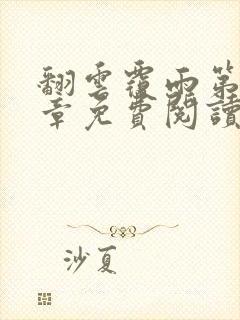 翻雲覆雨第
章免費閱讀
沙夏